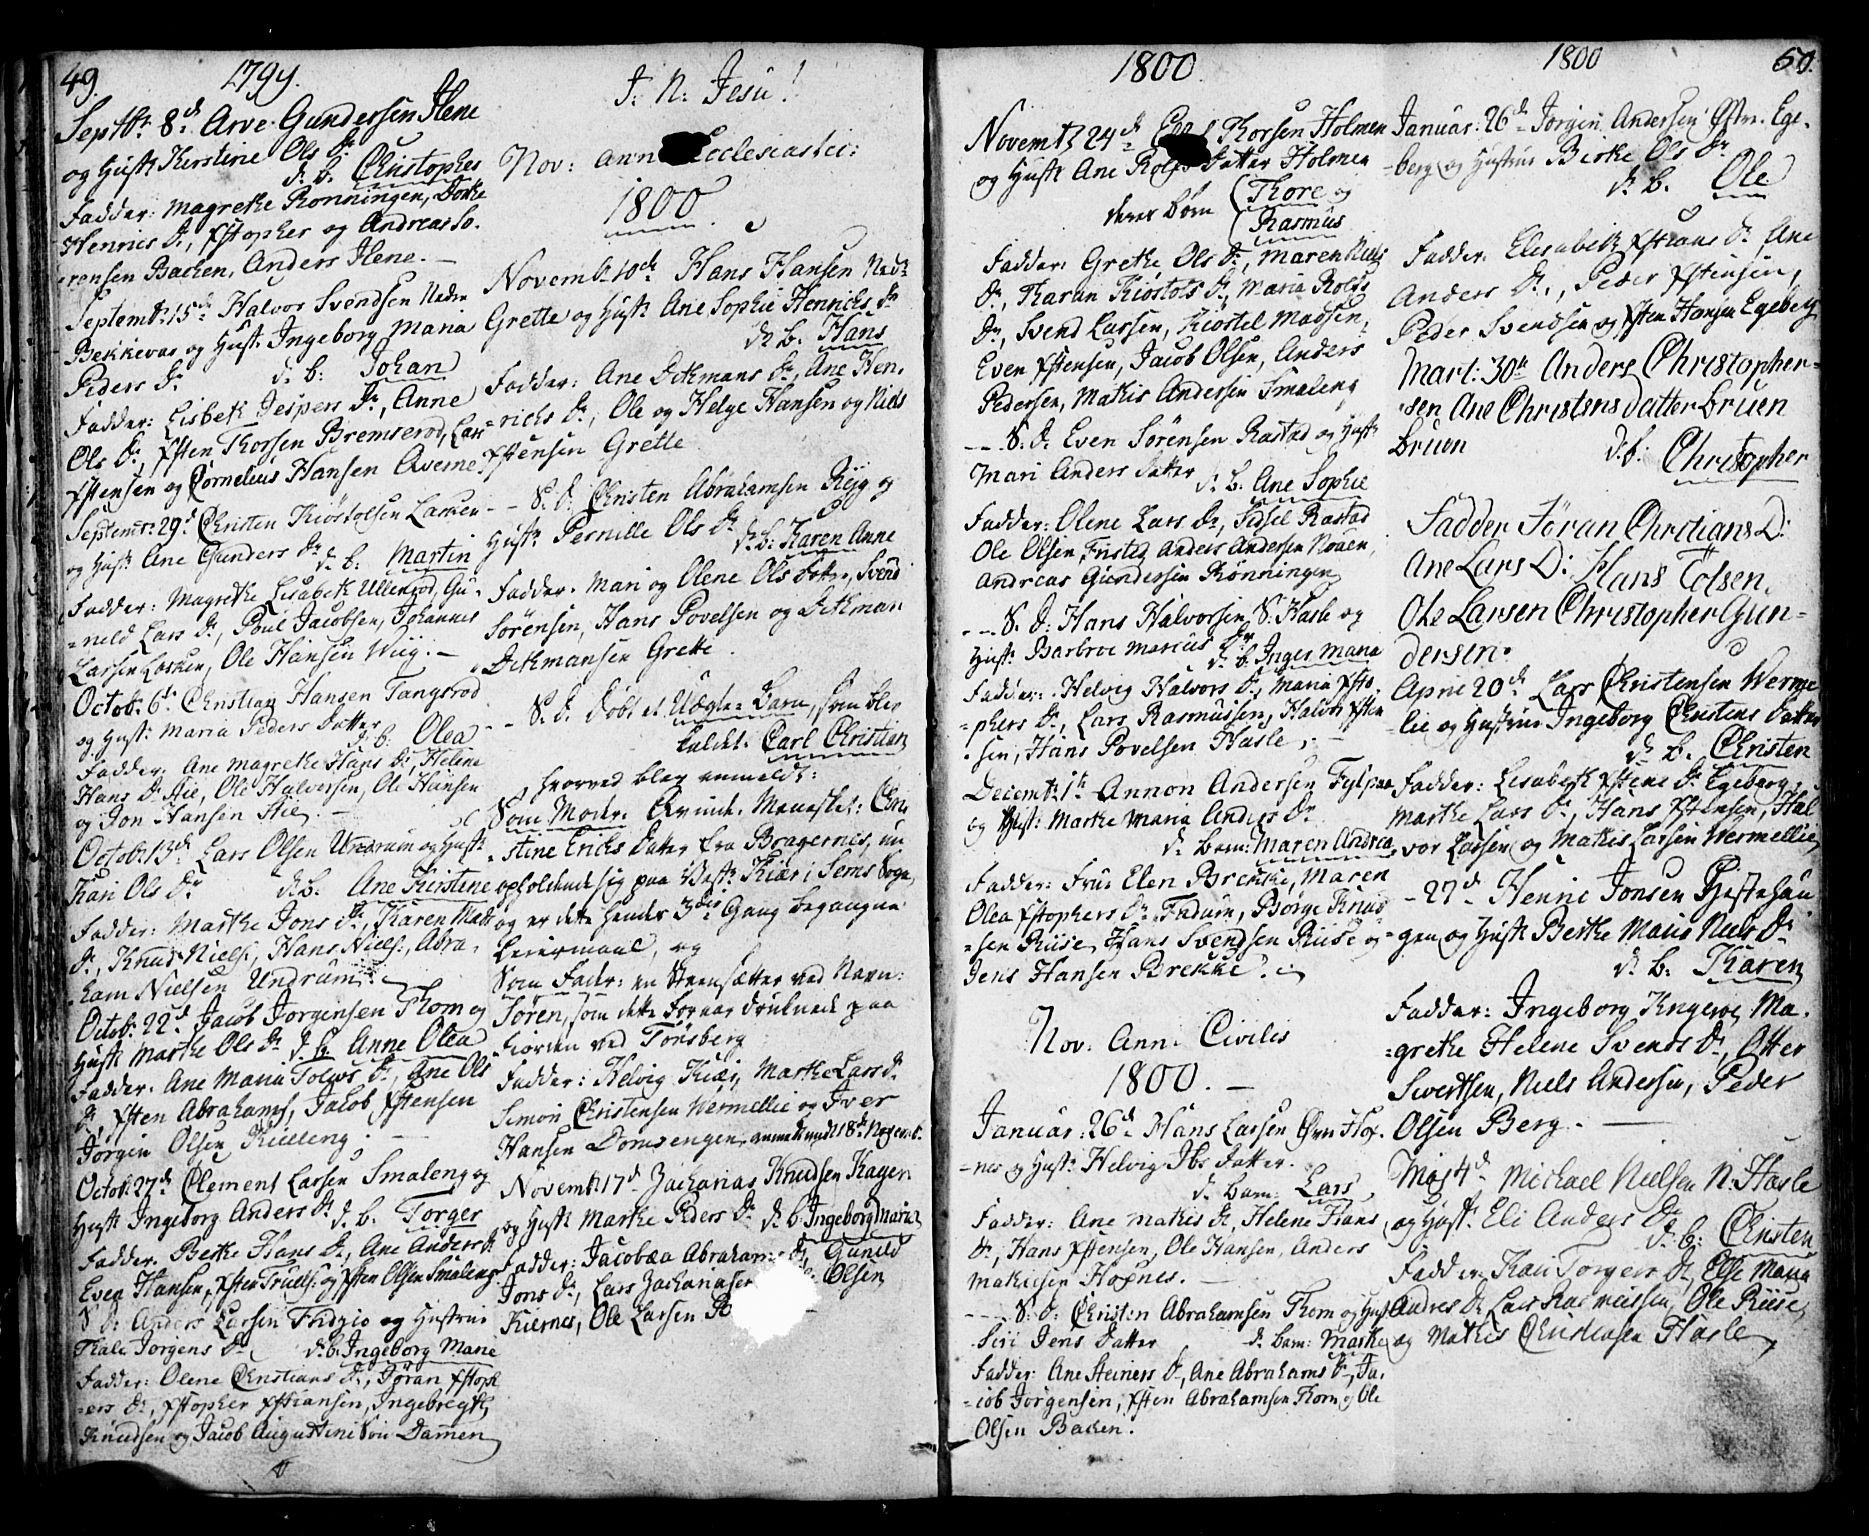 49.
1799.
Septbr: 8d Arve Gundersen Ilene
og Hustr Kerstine Ols Dr
d. b. Christopher
Fadder: Magrethe Rønningen, Dorthe
Henrics Dr, Xstopher og Andreas So-
rensen Backen, Anders Ilene. –
Septembr: 15de Halvor Svendsen Nedre
Bekkevar og Hust: Ingeborg Maria
Peders Dr d. b: Johan
Fadder: Lisbeth Jespers Dr, Anne
Ols Dr, Xsten Thorsen Bremserod, Lars
Xstensen og Cornelius Hansen Qverne
Septembr: 29d Christen Kiøstolsen Lasken
og Hust: Ane Gunders Dr d. b: Martin
Fadder: Magrethe Lisabeth Ullerød, Gu-
=neld Lars Dr, Poul Jacobsen, Johannes
Larsen Lasken, Ole Hansen Wiig. –
Octob: 6te Christian Hansen Tangsrød
og Hust: Maria Peders Datter
d. b: Olea
Fadder: Ane Magrethe Hans Dr, Helene
Hans Dr Aie, Ole Halvorsen, Ole Hansen
og Jon Hansen Aie. –
Octob: 13de Lars Olsen Undrum og Hustr
Kari Ols Dr d. b. Ane Kirstine
Fadder: Marthe Jons Dr, Karen Matt
Dr, Knud Niels:, Hans Niels:, Abra-
ham Nielsen Undrum.
Octob: 22d Jacob Jorgensen Thom og
Hustr Marthe Ols Dr d. b. Anne Olea
Fadder. Ane Maria Tolevs Dr, Ane Ols
Dr Xsten Abrahams, Jacob Xstensen
Jørgen Olsen Kulleng. –
Octob: 27de Clement Larsen Smaleng og
Hustr Ingeborg Anders Dr d. b. Torger
Fadder. Berthe Hans Dr, Ane Anders Dr
Even Hansen, Xsten Truels: og Xsten Olsen Smaleng
S. D. Anders Larsen Fridgio og Hustrue
Thale Jorgens Dr d. b. Ingeborg Marie
Fadder: Olene Christians Dr, Jøran Xstoph
=ers Dr, Xstopher Xstiansen, Ingebregt
Knudsen og Jacob Augustini Søn Damen
I. N. Jesu!
Nov: ann Ecclesiastici:
1800.
Novembr 10de Hans Hansen Nedr
Grette og Hustr Ane Sophie Henrichs Dr
d. b. Hans
Fadder: Ane Dithmans Dr, Ane Hen-
=richs Dr, Ole og Helge Hansen og Niels
Xstensen Grette
– – S. D. Christen Abrahamsen Rygg og
Hustr Pernille Ols Dr d. b: Karen Anne
Fadder. Mari og Olene Ols Datter, Svend
Sørensen, Hans Povelsen og Dithman
Dithmansen Grette.
– S. D. Døbt et Uægte Barn, som blev
kaldet. Carl Christian
hvorved blev anmeldt:
Som Moder. Qvinde-Mennesket: Chri
stine Erichs Datter fra Bragernes, nu
opholdende sig paa Vestr: Kiær i Sems Sogn
og er dette hendes 3die Gang begangne
Leiermaal, og
Som Fader: en Steensætter ved Navn:
Søren, som dette Foraar druknede paa
Fiorden ved Tønsberg
Fadder: Helvig Kiær, Marthe Lars Dr
Simon Christensen Wermellie og Iver
Hansen Domvengen, anmeldt 18de Novemb.
Novembr: 17d Zacharias Knudsen Kagen
og Hustr Marthe Peders Dr d. b. Ingeborg Maria
Fadder: Jacobæa Abraham Dr, Gunild
Jons Dr, Lars Zachariasen Olsen
Kiernes, Ole Larsen
1800.
Novembr 24d Thorsen Holmen
og Hustr Ane Rolfs Datter Holmen
deres Børn (Thore og
Rasmus
Fadder: Grethe Ols Dr, Maren Niels
Dr, Karan Kiøstols Dr, Maria Rolfs
Dr, Svend Larsen, Kiøstel Madsen,
Even Xstensen, Jacob Olsen, Anders
Pedersen, Mathis Andersen Smaleng
– – S. D. Even Sørensen Rastad og Hustr
Mari Anders Datter d. b. Ane Sophie
Fadder: Olene Lars Dr, Sidsel Rastad
Ole Olsen Fristed, Anders Andersen Nøuen,
Andreas Gundersen Rønningen
– – S. D. Hans Halvorsen S. Hasle og
Hust: Barbroe Marcus Dr
d. b. Inger Maria
Fadder: Helvig Halvors Dr, Maria Xsto-
=phers Dr, Lars Rasmussen, Halvor Xsten
=sen, Hans Povelsen Hasle, –
Decembr: 1te Annon Andersen
og Hust: Marthe Maria Anders Dr
d. Barn: Maren Andrea
Fadder: Frue Elen Brekke, Maren
Olea Xstophers Dr Endum, Børge Knud
=sen Riise, Hans Svendsen Riise og
Jens Hansen Brekke.
Nov: Ann: Civiles
1800. –
Januar: 26de Hans Larsen Øvr Hox-
=nes og Hust: Helvig Ibs Datter.
d. Barn: Lars
Fadder: Ane Mathis Dr, Helene Hans
Dr, Hans Xstensen, Ole Hansen, Anders
Mathisen Hoxnes. –
– – S. D. Christen Abrahamsen Thom og Hust
Siri Jens Datter d. Barn: Marthe
Fadder: Ane Steiners Dr, Ane Abrahams Dr, Ja-
=cob Jørgensen, Xsten Abrahamsen Thom, og Ole
Olsen Backen.
1800
50.
Januar: 26de Jørgen Andersen Østre Ege-
=berg og Hustrue Berthe Ols Dr
d. b. Ole
Fadder: Elisabeth Xstians Dr Ane
Anders Dr, Peder Xstensen,
Peder Svendsen og Xsten Hansen Egeberg
Mart: 30te Anders Christopher-
sen Ane Christens datter bruen
bruen d. b: Christopher
Fadder Jøran Chrstians D:
Ane Lars D: Hans Tolsen,
Ole Larsen Christopher Gun-
dersen.
April 20de Lars Christensen Werme
lie og Hustrue Ingeborg Christens Datter
d. b. Christen
Fadder: Lisabeth Xstens Dr Egeberg,
Marthe Lars Dr, Hans Xstensen, Hal
vor Larsen og Mathis Larsen Wermellie
– 27d Henric Jonsen Prestehau
=gen og Hustr Berthe Maria Niels Dr
d. b. Karen
Fadder: Ingeborg Kngeroe, Ma-
=grethe Helene Svends Dr, Otter
Sivertsen, Niels Andersen, Peder
Olsen Berg. –
Maj 4d Michael Nielsen N. Hasle
og Hust: Eli Anders Dr
d. b: Christen
Fadder: Kari Torgers Dr, Else Maria
Andres Dr Lars Rasmussen, Ole Riise,
og Mathis Christensen Hasle